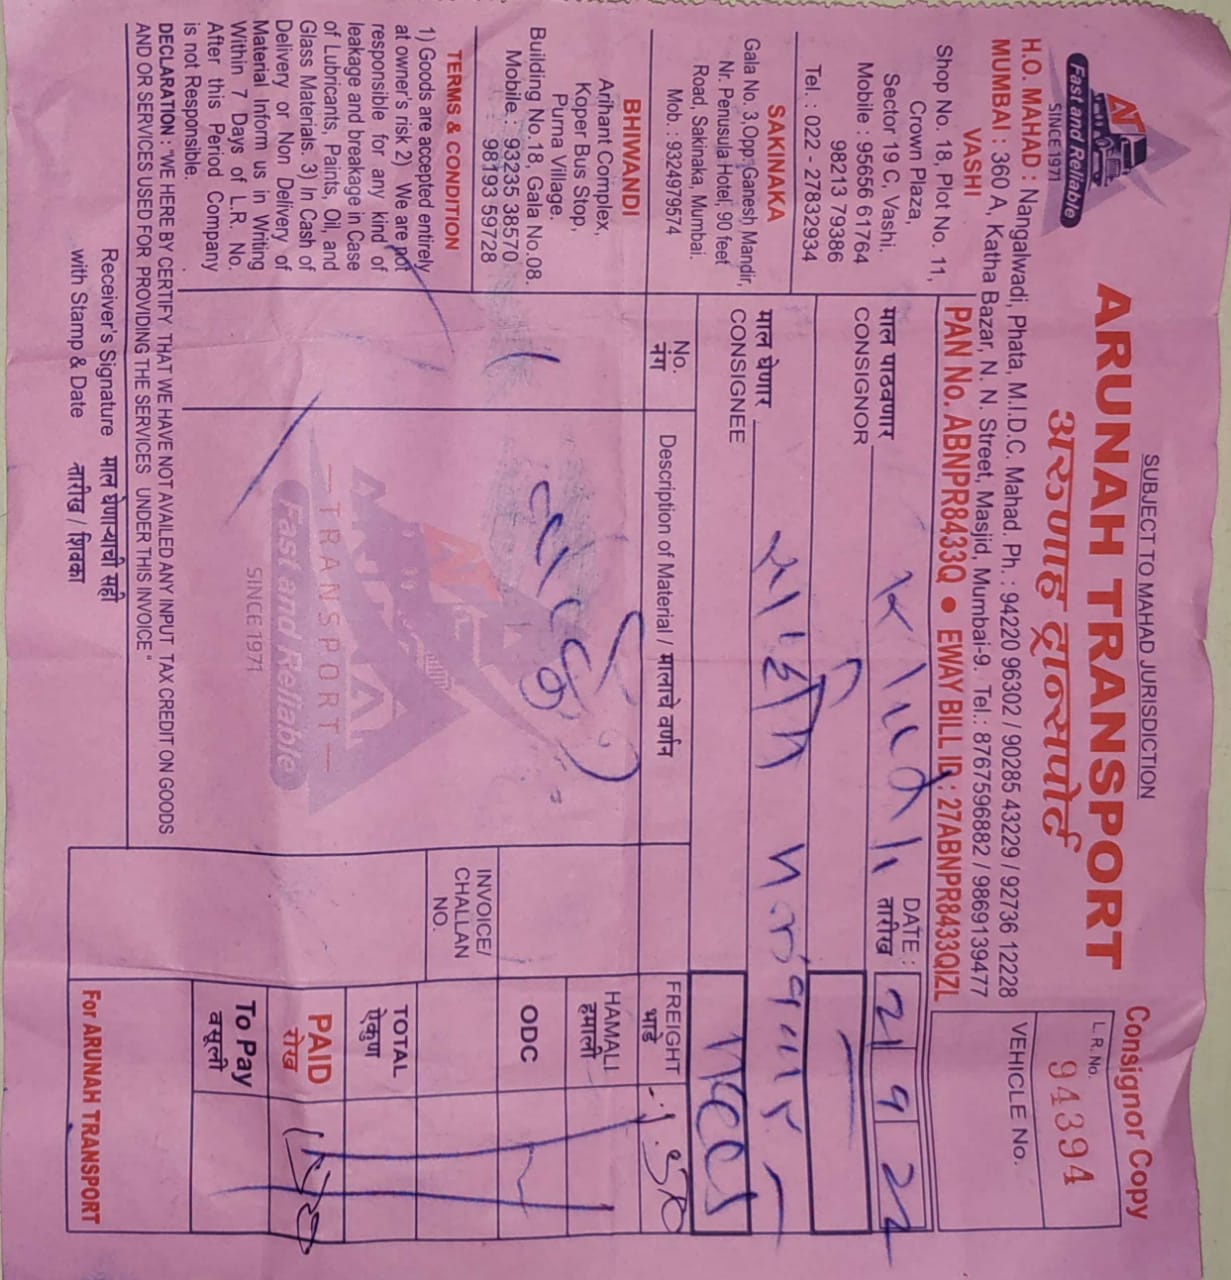 SUBJECT TO MAHAD JURISDICTION
Consignor Copy
AT
Fast and Reliable
SINCE 1971
ARUNAH TRANSPORT
अरुणाह ट्रान्सपोर्ट
L.R. No.
94394
VEHICLE No.
H.O. MAHAD : Nangalwadi, Phata, M.I.D.C. Mahad. Ph. : 94220 96302 / 90285 43229 / 92736 12228
MUMBAI : 360 A, Katha Bazar, N. N. Street, Masjid, Mumbai-9. Tel.: 8767596882 / 9869139477
PAN No. ABNPR8433Q ● EWAY BILL ID : 27ABNPR8433QIZL
VASHI
Shop No. 18, Plot No. 11,
Crown Plaza,
Sector 19 C, Vashi.
Mobile : 95656 61764
98213 79386
Tel. : 022 - 27832934
SAKINAKA
Gala No. 3,Opp. Ganesh Mandir,
Nr. Penusula Hotel, 90 feet
Road, Sakinaka, Mumbai.
Mob. : 9324979574
BHIWANDI
Arihant Complex,
Koper Bus Stop,
Purna Village.
Building No.18, Gala No.08.
Mobile.: 93235 38570
98193 59728
TERMS & CONDITION
1) Goods are accepted entirely
at owner's risk 2) We are not
responsible for any kind of
leakage and breakage in Case
of Lubricants, Paints, Oil, and
Glass Materials. 3) In Cash of
Delivery or Non Delivery of
Material Inform us in Writing
Within 7 Days of L.R. No.
After this Period Company
is not Responsible.
माल पाठवणार
CONSIGNOR
DATE :
तारीख
21 9 22
माल घेणार
CONSIGNEE
No.
नंग
Description of Material / मालाचे वर्णन
FREIGHT
भाडे
HAMALI
हमाली
ODC
INVOICE/
CHALLAN
NO.
TOTAL
ऐकुण
PAID
रोख
To Pay
वसूली
TRANSPORT
Fast and Reliable
SINCE 1971
DECLARATION : "WE HERE BY CERTIFY THAT WE HAVE NOT AVAILED ANY INPUT TAX CREDIT ON GOODS
AND OR SERVICES USED FOR PROVIDING THE SERVICES UNDER THIS INVOICE."
Receiver's Signature माल घेणाऱ्याची सही
with Stamp & Date तारीख / शिक्का
For ARUNAH TRANSPORT